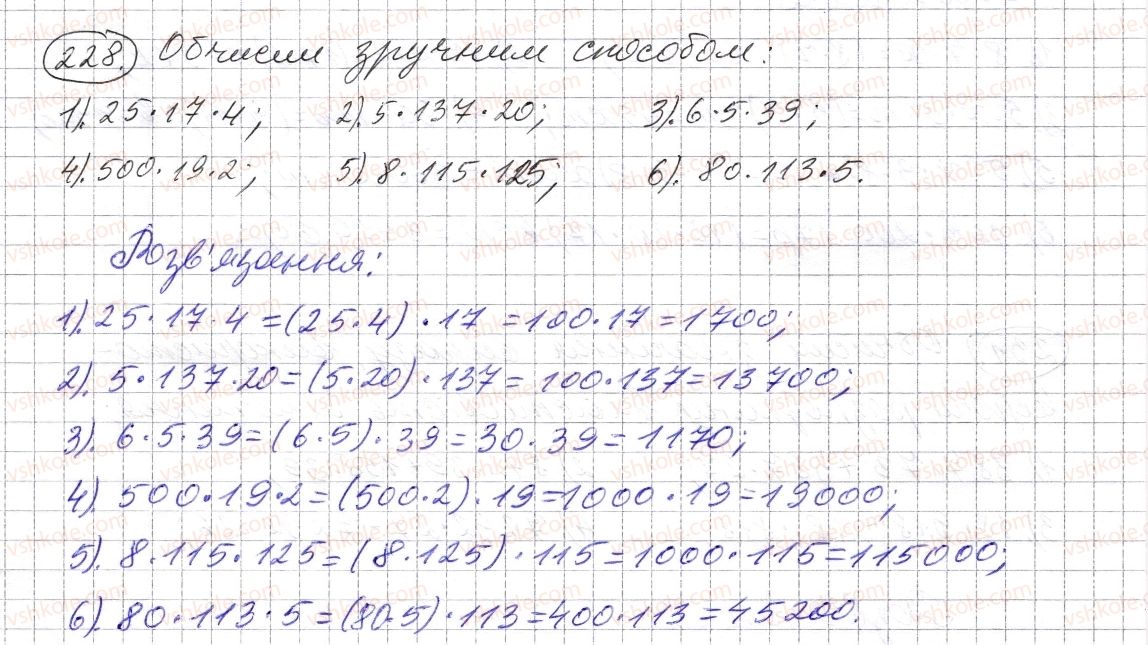 228. Обчисли зручним способом:
1). 25·17·4; 2). 5·137·20; 3). 6·5·39;
4). 500·19·2; 5). 8·115·125; 6). 80·113·5.
Розв'язання:
1). 25·17·4=(25·4)·17=100·17=1700;
2). 5·137·20=(5·20)·137=100·137=13700;
3). 6·5·39=(6·5)·39=30·39=1170;
4). 500·19·2=(500·2)·19=1000·19=19000;
5). 8·115·125=(8·125)·115=1000·115=115000;
6). 80·113·5=(80·5)·113=400·113=45200.